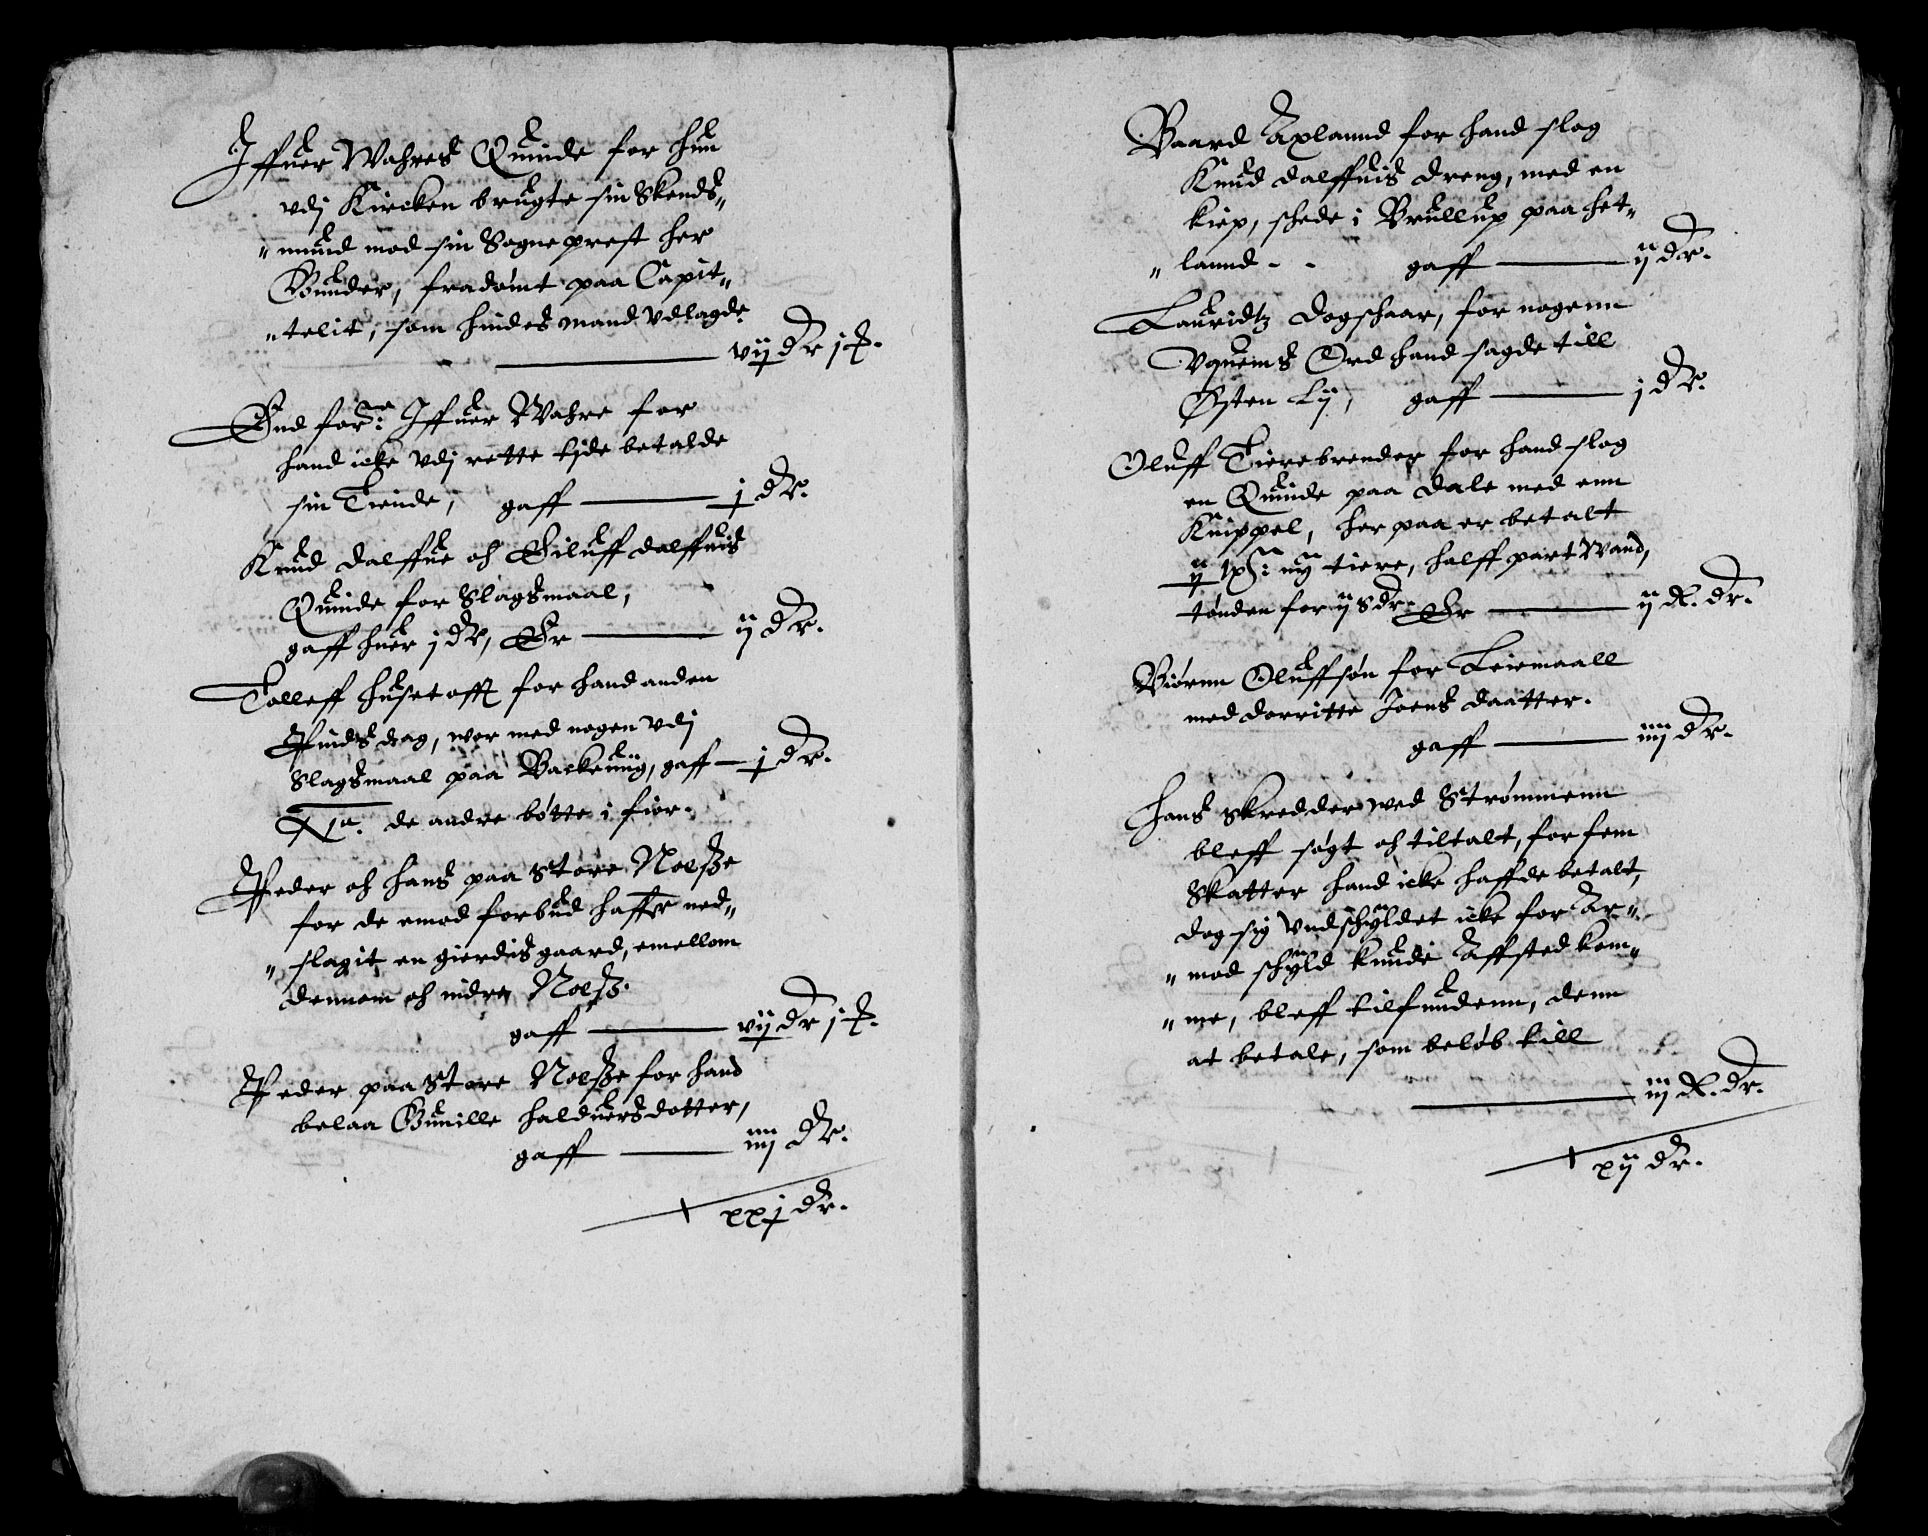 Iffuer Wahres Quinde for hun
vdj Kircken brugte sin Skends„
„mund mod sin Sogneprest her
Gunder, fradømt paa Capit„
„telit, som hindes mand vdlagde
vij dr j ℔.
End for:ne Iffuer Wahre for
hand icke vdj rette tjde betalde
sin Tiende, gaff j dr.
Knud Dalffue och Eiluff Dalffuis
Quinde for Slagsmaal,
gaff huer j dr, Er ij dr.
Tolleff Husetofft for hand anden
Pindsdag, wor med nogen vdj
Slagsmaal paa Backeuiig, gaff j dr.
N:a de andre bøtte i fior.
Peder och Hans paa Store Nolsse
for de emod forbud haffuer ned„
„slagit en gierdisgaard, emellom
dennom och indre Nolss.
gaff vij dr j ℔.
Peder paa Store Nolsse for hand
belaa Gunille Halduersdotter,
gaff iiij dr.
xxj dr.
Baard Axlannd for hand slog
Knud Dalffuis dreng, med en
kiep, skede i Brullup paa Het„
„lannd - - gaff ij dr.
Lauridtz Dogschaar, for nogenn
Vquems Ord hand sagde till
Østen Lij, gaff j dr.
Oluff Tierebrender for hand slog
en Quinde paa Dale med enn
Knippel, her paa er betalt
ij tiere, halff part Wand,
tønden for ij Sdr. Er ij R. dr.
Biørnn Oluffsøn for Leiemaall
med Dorritte Joens daatter.
gaff iiij dr.
Hans Skredder wed Strømmenn
bleff søgt och tiltalt, for fem
Skatter hand icke haffde betalt,
dog sig vndschyldet icke for Ar„
„mod schyld kunde Affsted kom„
„me, bleff tilfundenn, denn
at betale, som beløb till
iij R. dr.
xij dr.